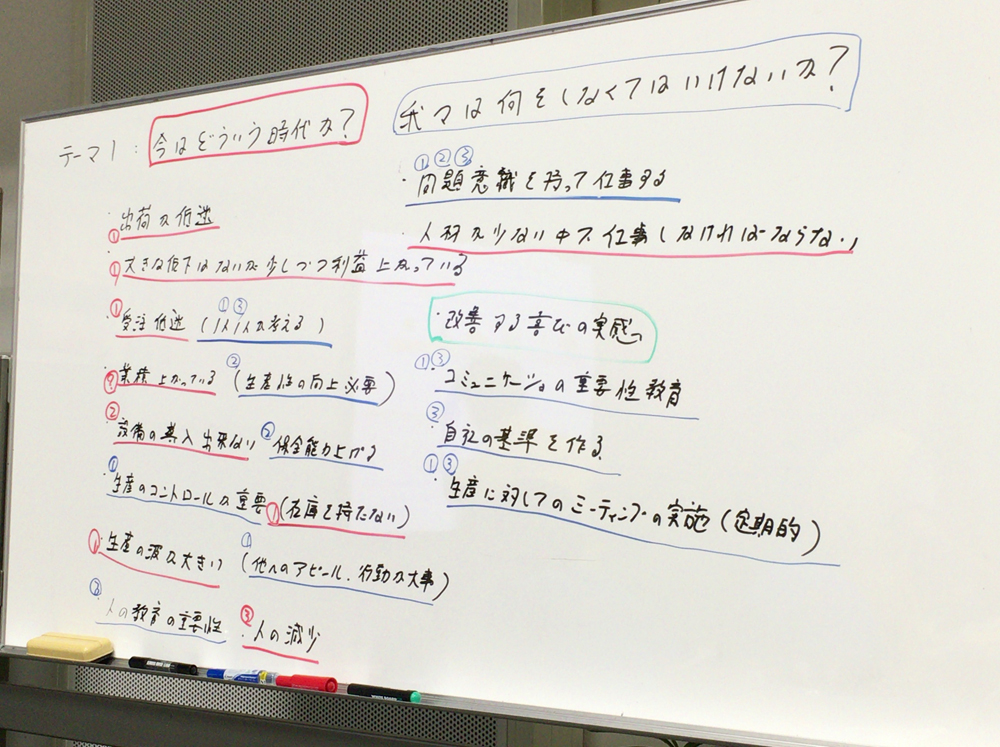 テーマ1：今はどういう時代か？
・出荷が低迷
①
・大きな低下はないが少しづつ利益上がっている
①
①
①③
・受注低迷（1人1人が考える）
②
業績上がっている（生産性の向上必要）
②
②
・設備の導入出来ない・保全能力上げる
①
・生産のコントロールが重要（在庫を持たない）
①
①
①
・生産の波が大きい（他へのアピール、行動が大事）
③
人の教育の重要性
③
・人の減少
我々は何をしなくてはいけないか？
①②③
・問題意識を持って仕事する
・人材が少ない中で仕事しなければならない
・改善する喜びの実感
①③
・コミュニケーションの重要性教育
③
・自社の基準を作る
①③
・生産に対してのミーティングの実施（定期的）